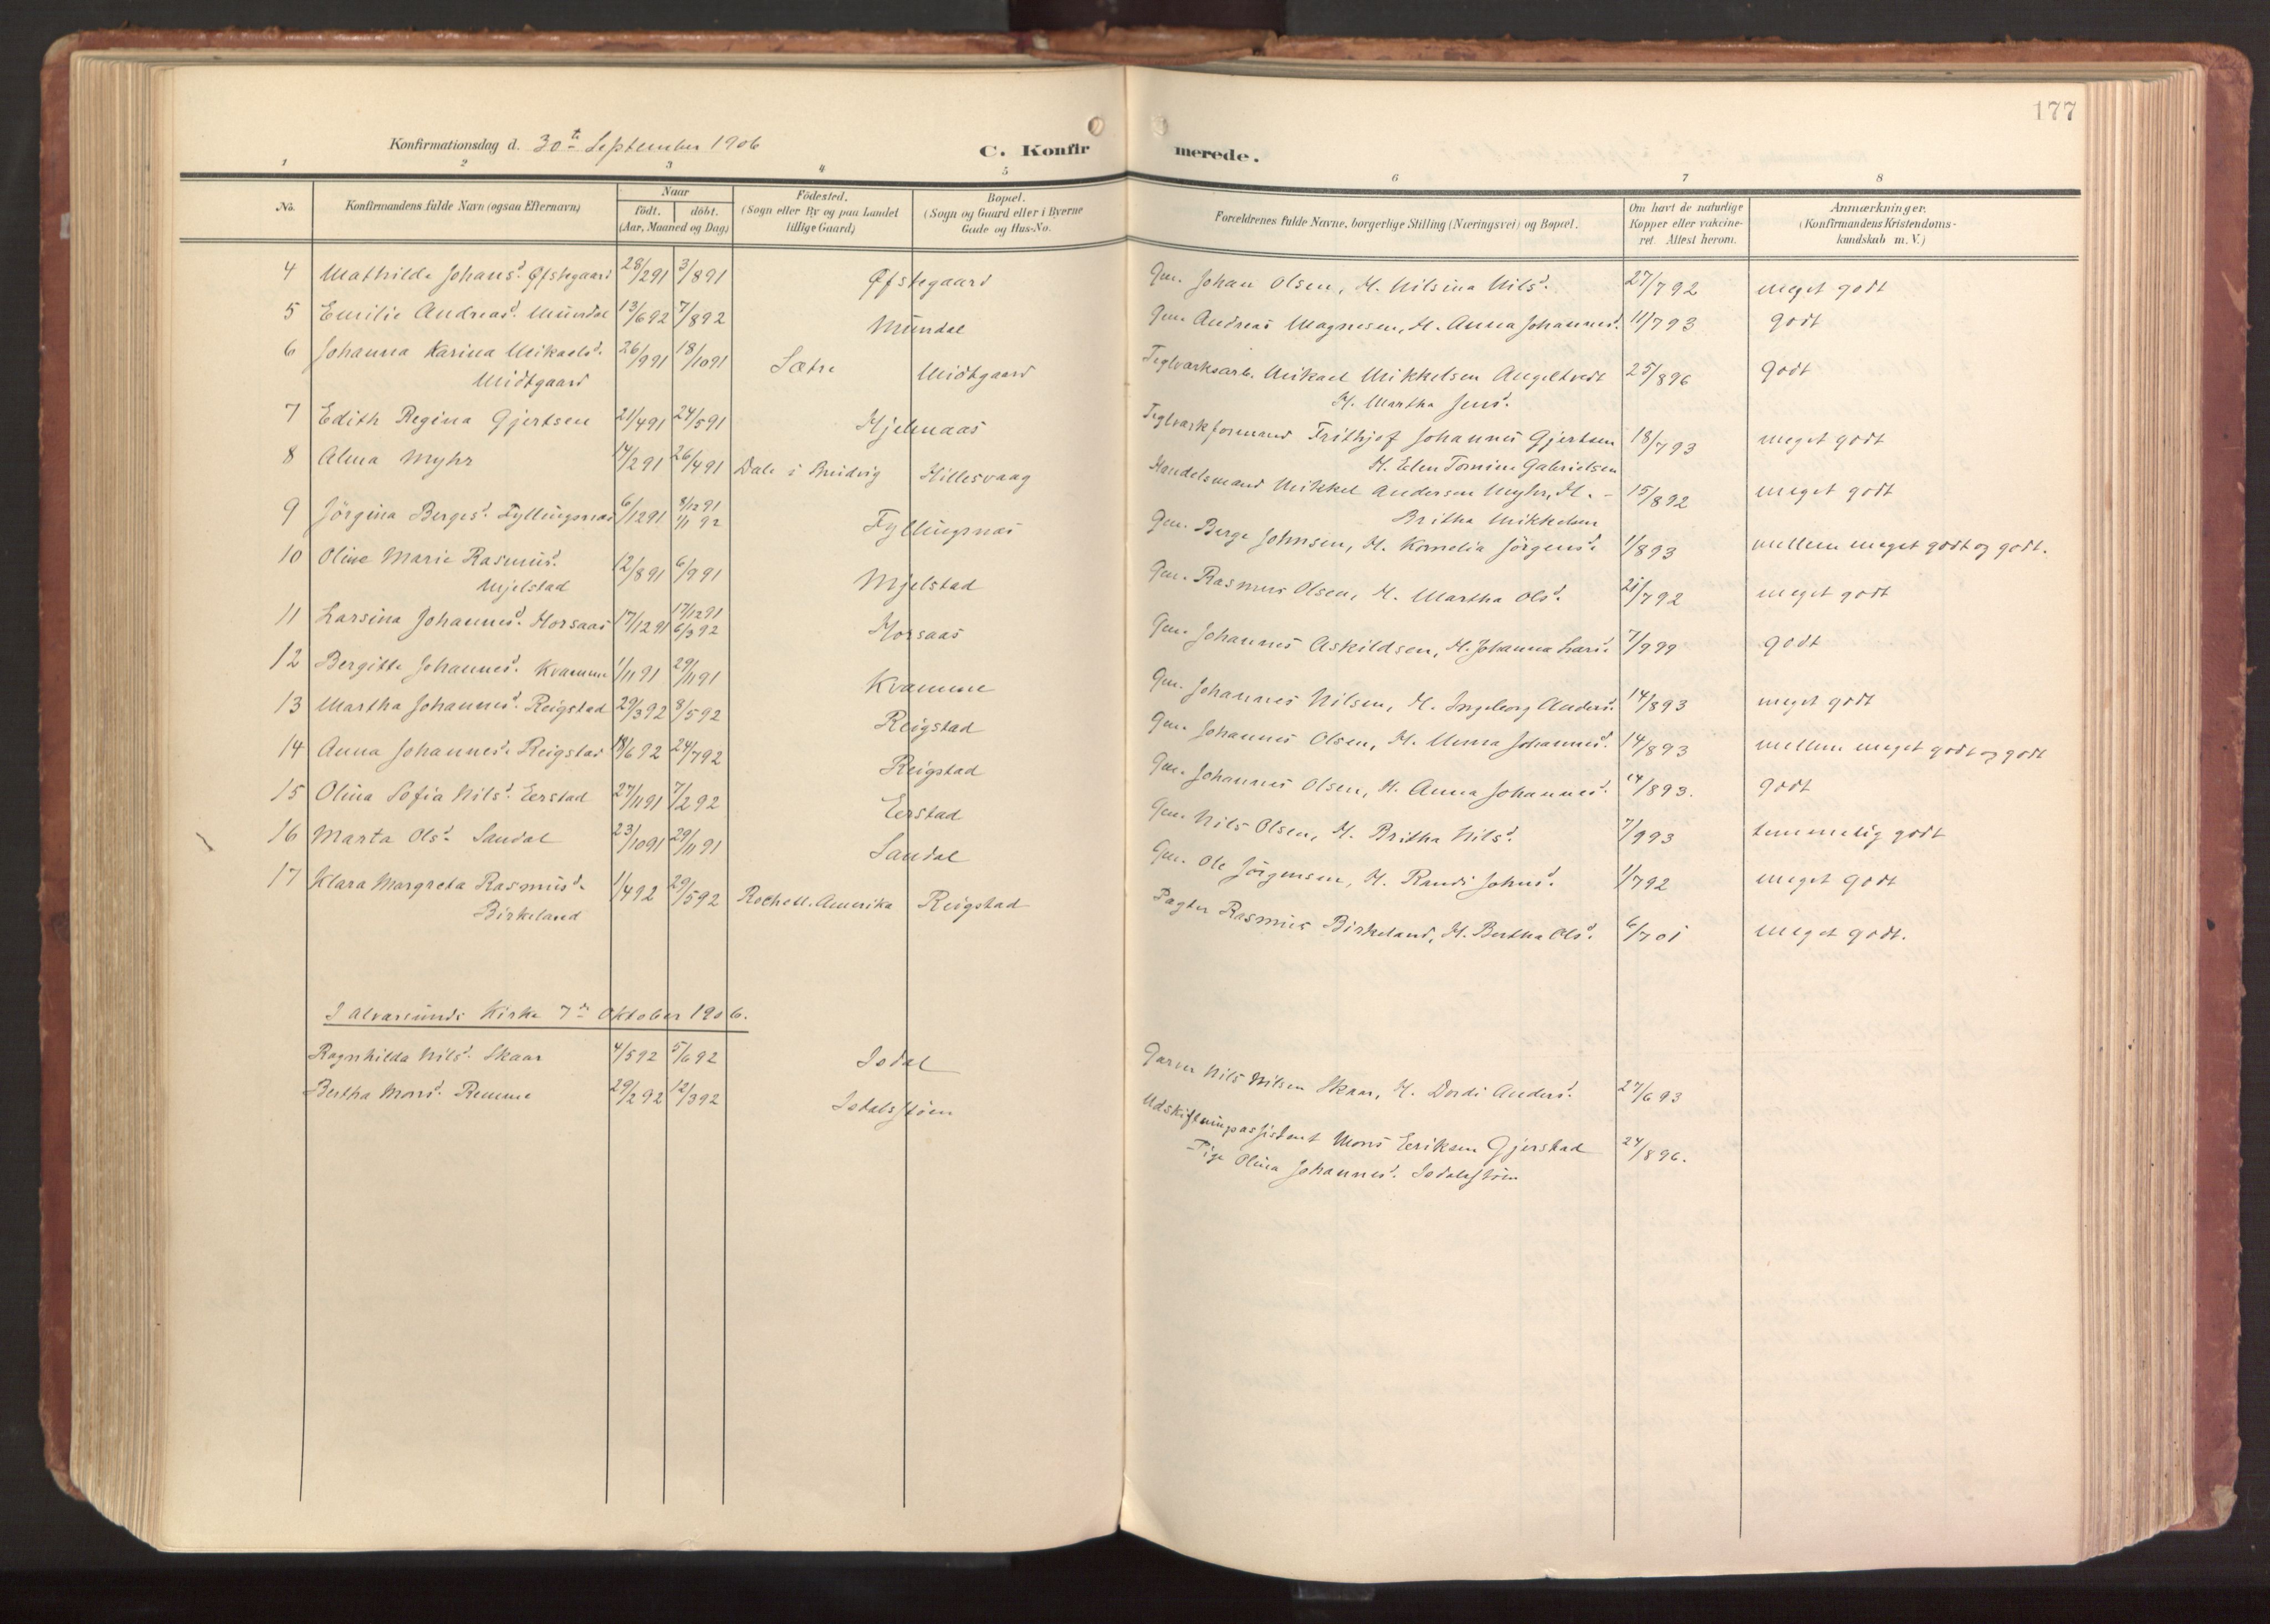 177
Konfirmationsdag d. 30te September 1906
C. Konfirmerede.
1 2 3 4 5 6 7 8
No. Konfirmandens fulde Navn (ogsaa Efternavn) Naar födt. döbt. (Aar, Maaned og Dag) Födested. (Sogn eller By og paa Landet tillige Gaard) Bopæl. (Sogn og Gaard eller i Byerne Gade og Hus-No. Forældrenes fulde Navne, borgerlige Stilling (Næringsvei) og Bopæl. Om havt de naturlige Kopper eller vakcineret. Attest herom. Anmærkninger. (Konfirmandens Kristendomskundskab m. V.)
4 Mathilda Johansd. Øfstegaard 28/291 3/891 Øfstegaard Gm. Johan Olsen, H. Nilsina Nilsd. 27/792 meget godt
5 Emilie Andreasd. Mundal 13/692 7/892 Mundal Gm. Andreas Magnesen, H. Anna Johannesd. 11/793 godt
6 Johanna Karina Mikaelsd. 26/991 18/1091 Sætre Midtgaard Teglværksarb. Mikael Mikkelsen Angeltvedt 25/896 godt
Midtgaard H. Martha Jensd.
7 Edith Regina Gjertsen 21/491 24/591 Hjelmaas Teglværkformand Frithjof Johannes Gjertsen 18/793 meget godt
H. Elen Tomine Gabrielsen
8 Alma Myhr 14/291 26/491 Dale i Bruvig Hillesvaag Handelsmand Mikkel Andersen Myhr, H. - 15/892 meget godt
Britha Mikkelsen
9 Jörgina Bergesd. Fyllingsnæs 6/1291 8/1291 1/1 92 Fyllingsnæs Gm. Berge Johnsen, H. Kornelia Jörgensd. 1/893 mellem meget godt og godt.
10 Oline Marie Rasmusd. 12/891 6/991 Mjelstad Gm. Rasmus Olsen, H. Martha Olsd. 21/792 meget godt
Mjelstad
11 Larsina Johannesd. Horsaas 17/1291 17/1291 6/392 Horsaas Gm. Johannes Askildsen, H. Johanna Larsd. 7/999 godt
12 Bergitte Johannesd. Kvamme 1/1191 29/1191 Kvamme Gm. Johannes Nilsen, H. Ingeborg Andersd. 14/893 meget godt
13 Martha Johannesd. Reigstad 29/392 8/592 Reigstad Gm. Johannes Olsen, H. Anna Johannesd. 14/893 mellem meget godt og godt
14 Anna Johannesd. Reigstad 18/692 24/792 Reigstad Gm. Johannes Olsen, H. Anna Johannesd. 14/893. godt
15 Olina Sofia Nilsd. Eerstad 27/1191 7/292 Eerstad Gm. Nils Olsen, H. Britha Nilsd. 7/993 temmelig godt
16 Marta Olsd. Sandal 23/1091 29/1191 Sandal Gm. Ole Jörgensen, H. Randi Johnsd. 1/792 meget godt
17 Klara Margreta Rasmusd. 1/492 29/592 Rochell. Amerika Reigstad Pagter Rasmus Birkeland, H. Bertha Olsd. 6/701 meget godt.
Birkeland
I Alversunds Kirke 7de Oktober 1906.
Ragnhilda Nilsd. Skaar 4/592 5/692 Isdal Garver Nils Nilsen Skaar, H. Dordi Andersd. 27/693
Bertha Monsd. Remme 29/292 12/392 Isdalstöen Udskiftningsassistent Mons Eeriksen Gjerstad 24/896.
Pige Olina Johannesd. Isdalstöen